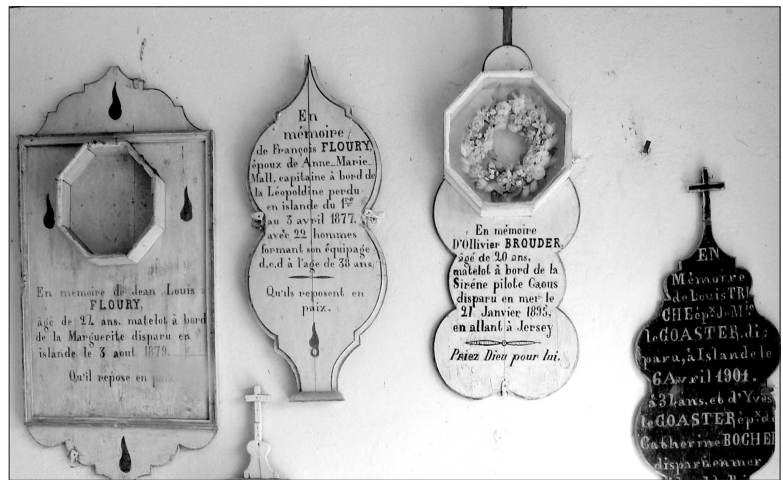 En mémoire de Jean Louis
FLOURY,
âgé de 24 ans, matelot à bord
de la Marguerite disparu en
islande le 3 aout 1879.
Qu'il repose en paix
En
mémoire
de François FLOURY,
époux de Anne-Marie-
Mall, capitaine à bord de
la Léopoldine perdu
en islande du 1er
au 3 avril 1877.
avec 22 hommes
formant son équipage
d.c.d à l'age de 38 ans,
Qu'ils reposent en
paix.
En mémoire
D'Ollivier BROUDER,
âgé de 20 ans,
matelot à bord de la
Sirène pilote Gaous
disparu en mer le
21 Janvier 1895,
en allant à Jersey
Priez Dieu pour lui.
EN
Mémoire
de Louis TRI
CHE épx J. Mie
le GOASTER, dis
paru, à Islande le
6 Avril 1901.
à 31 ans. et d'Yves
le GOASTER épx de
Catherine BOCHER
disparu en mer